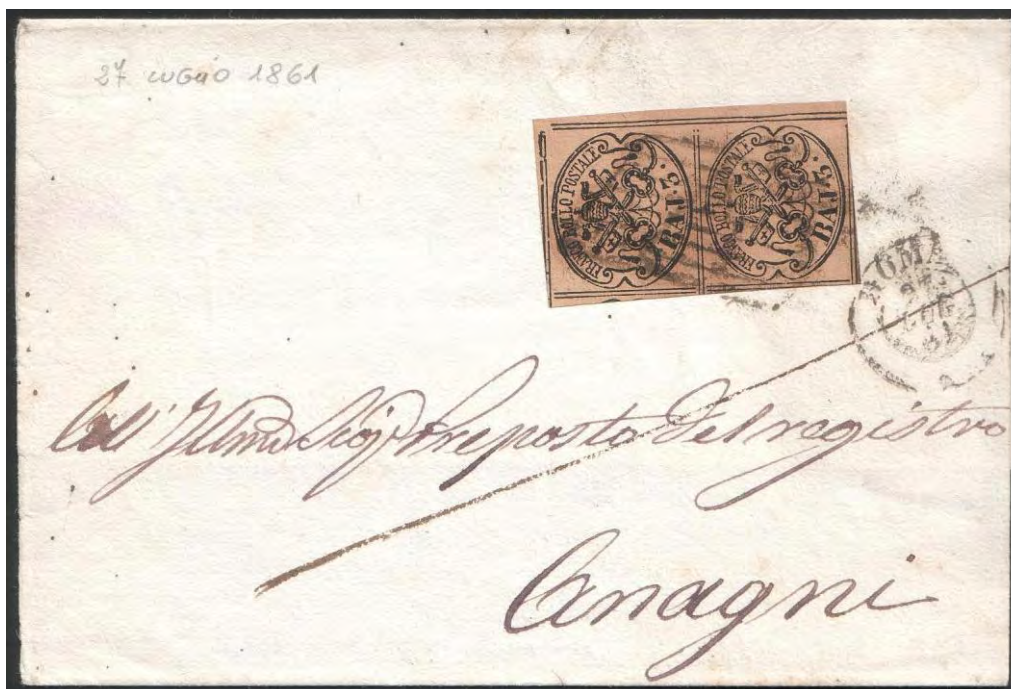 27 LUGLIO 1861
FRANCO BOLLO POSTALE
BAJ:3.
FRANCO BOLLO POSTALE
BAJ:3.
ROMA
27
LUG
61
All' Illmo Sigr Preposto del registro
Anagni